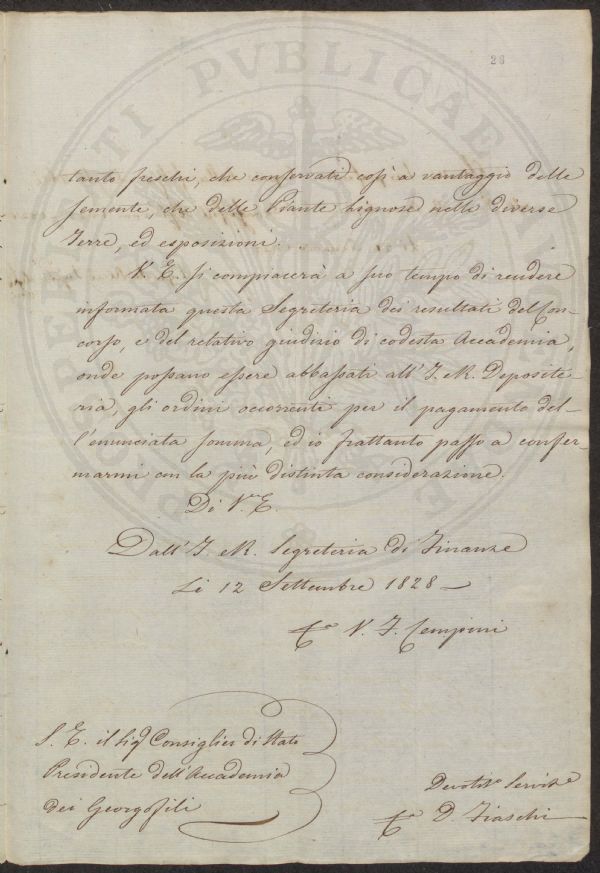 28
tanto freschi, che conservati così a vantaggio delle
semente, che delle Piante Lignose nelle diverse
Terre, ed esposizioni.
V. E. si compiacerà a suo tempo di rendere
informata questa Segreteria dei resultati del Con-
corso, e del relativo giudizio di codesta Accademia,
onde possano essere abbassati all' I. e R. Deposite-
ria, gli ordini occorrenti per il pagamento del-
l'enunciata somma, ed io frattanto passo a confer-
marmi con la più distinta considerazione.
Di V. E.
Dall' I. e R. Segreteria di Finanze
Li 12 Settembre 1828 —
V. F. Cempini
S. E. il Sig. Consiglier di Stato
Presidente dell'Accademia
dei Georgofili
Devotis. Servit.e
D. Fiaschi